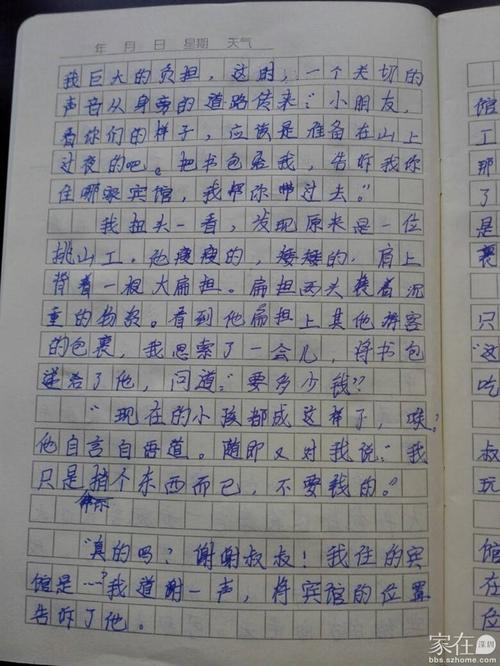 年 月 日 星期 天气
我巨大的负担，这时，一个关切的
声音从身旁的道路传来：“小朋友，
看你们的样子，应该是准备在山上
过夜的吧。把书包给我，告诉我你
住哪家宾馆，我帮你带过去。”
我扭头一看，发现原来是一位
挑山工。他瘦瘦的，矮矮的，肩上
背着一根大扁担。扁担两头装着沉
重的物资。看到他扁担上其他游客
的包裹，我思索了一会儿，将书包
递给了他，问道：“要多少钱？”
“现在的小孩都成这样了，唉。”
他自言自语道。随即又对我说：“我
只是捎个东西而已，不要钱的。”
帮你
“真的吗？谢谢叔叔！我住的宾
馆是……”我道谢一声，将宾馆的位置
告诉了他。
馆
工
那
了
是
裹
只
“这
吃
叔
玩
馆
在
位
家在深圳
bbs.szhome.com